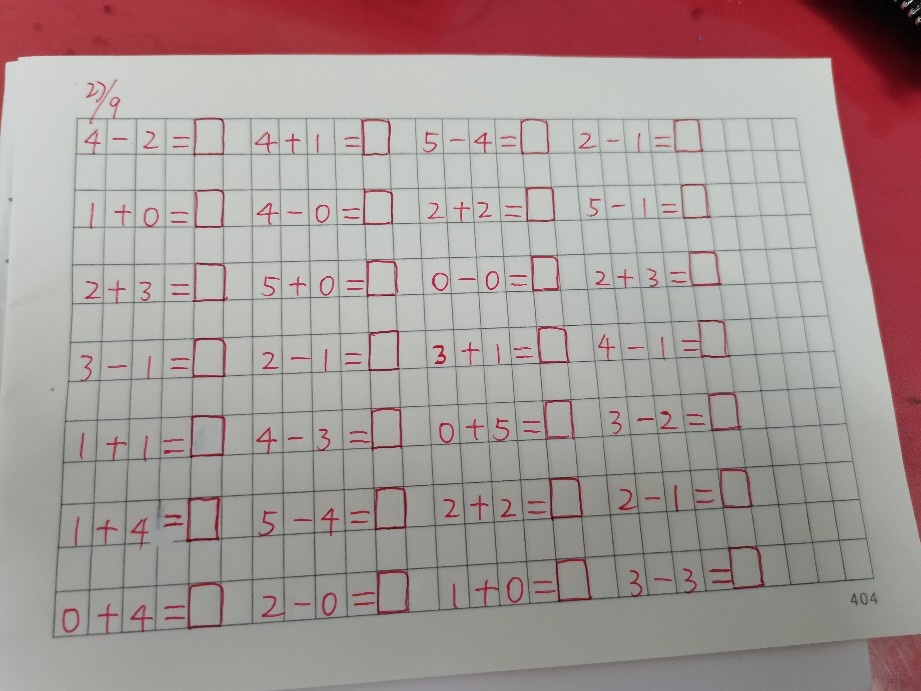 27/9
4-2=□ 4+1=□ 5-4=□ 2-1=□
1+0=□ 4-0=□ 2+2=□ 5-1=□
2+3=□ 5+0=□ 0-0=□ 2+3=□
3-1=□ 2-1=□ 3+1=□ 4-1=□
1+1=□ 4-3=□ 0+5=□ 3-2=□
1+4=□ 5-4=□ 2+2=□ 2-1=□
0+4=□ 2-0=□ 1+0=□ 3-3=□
404